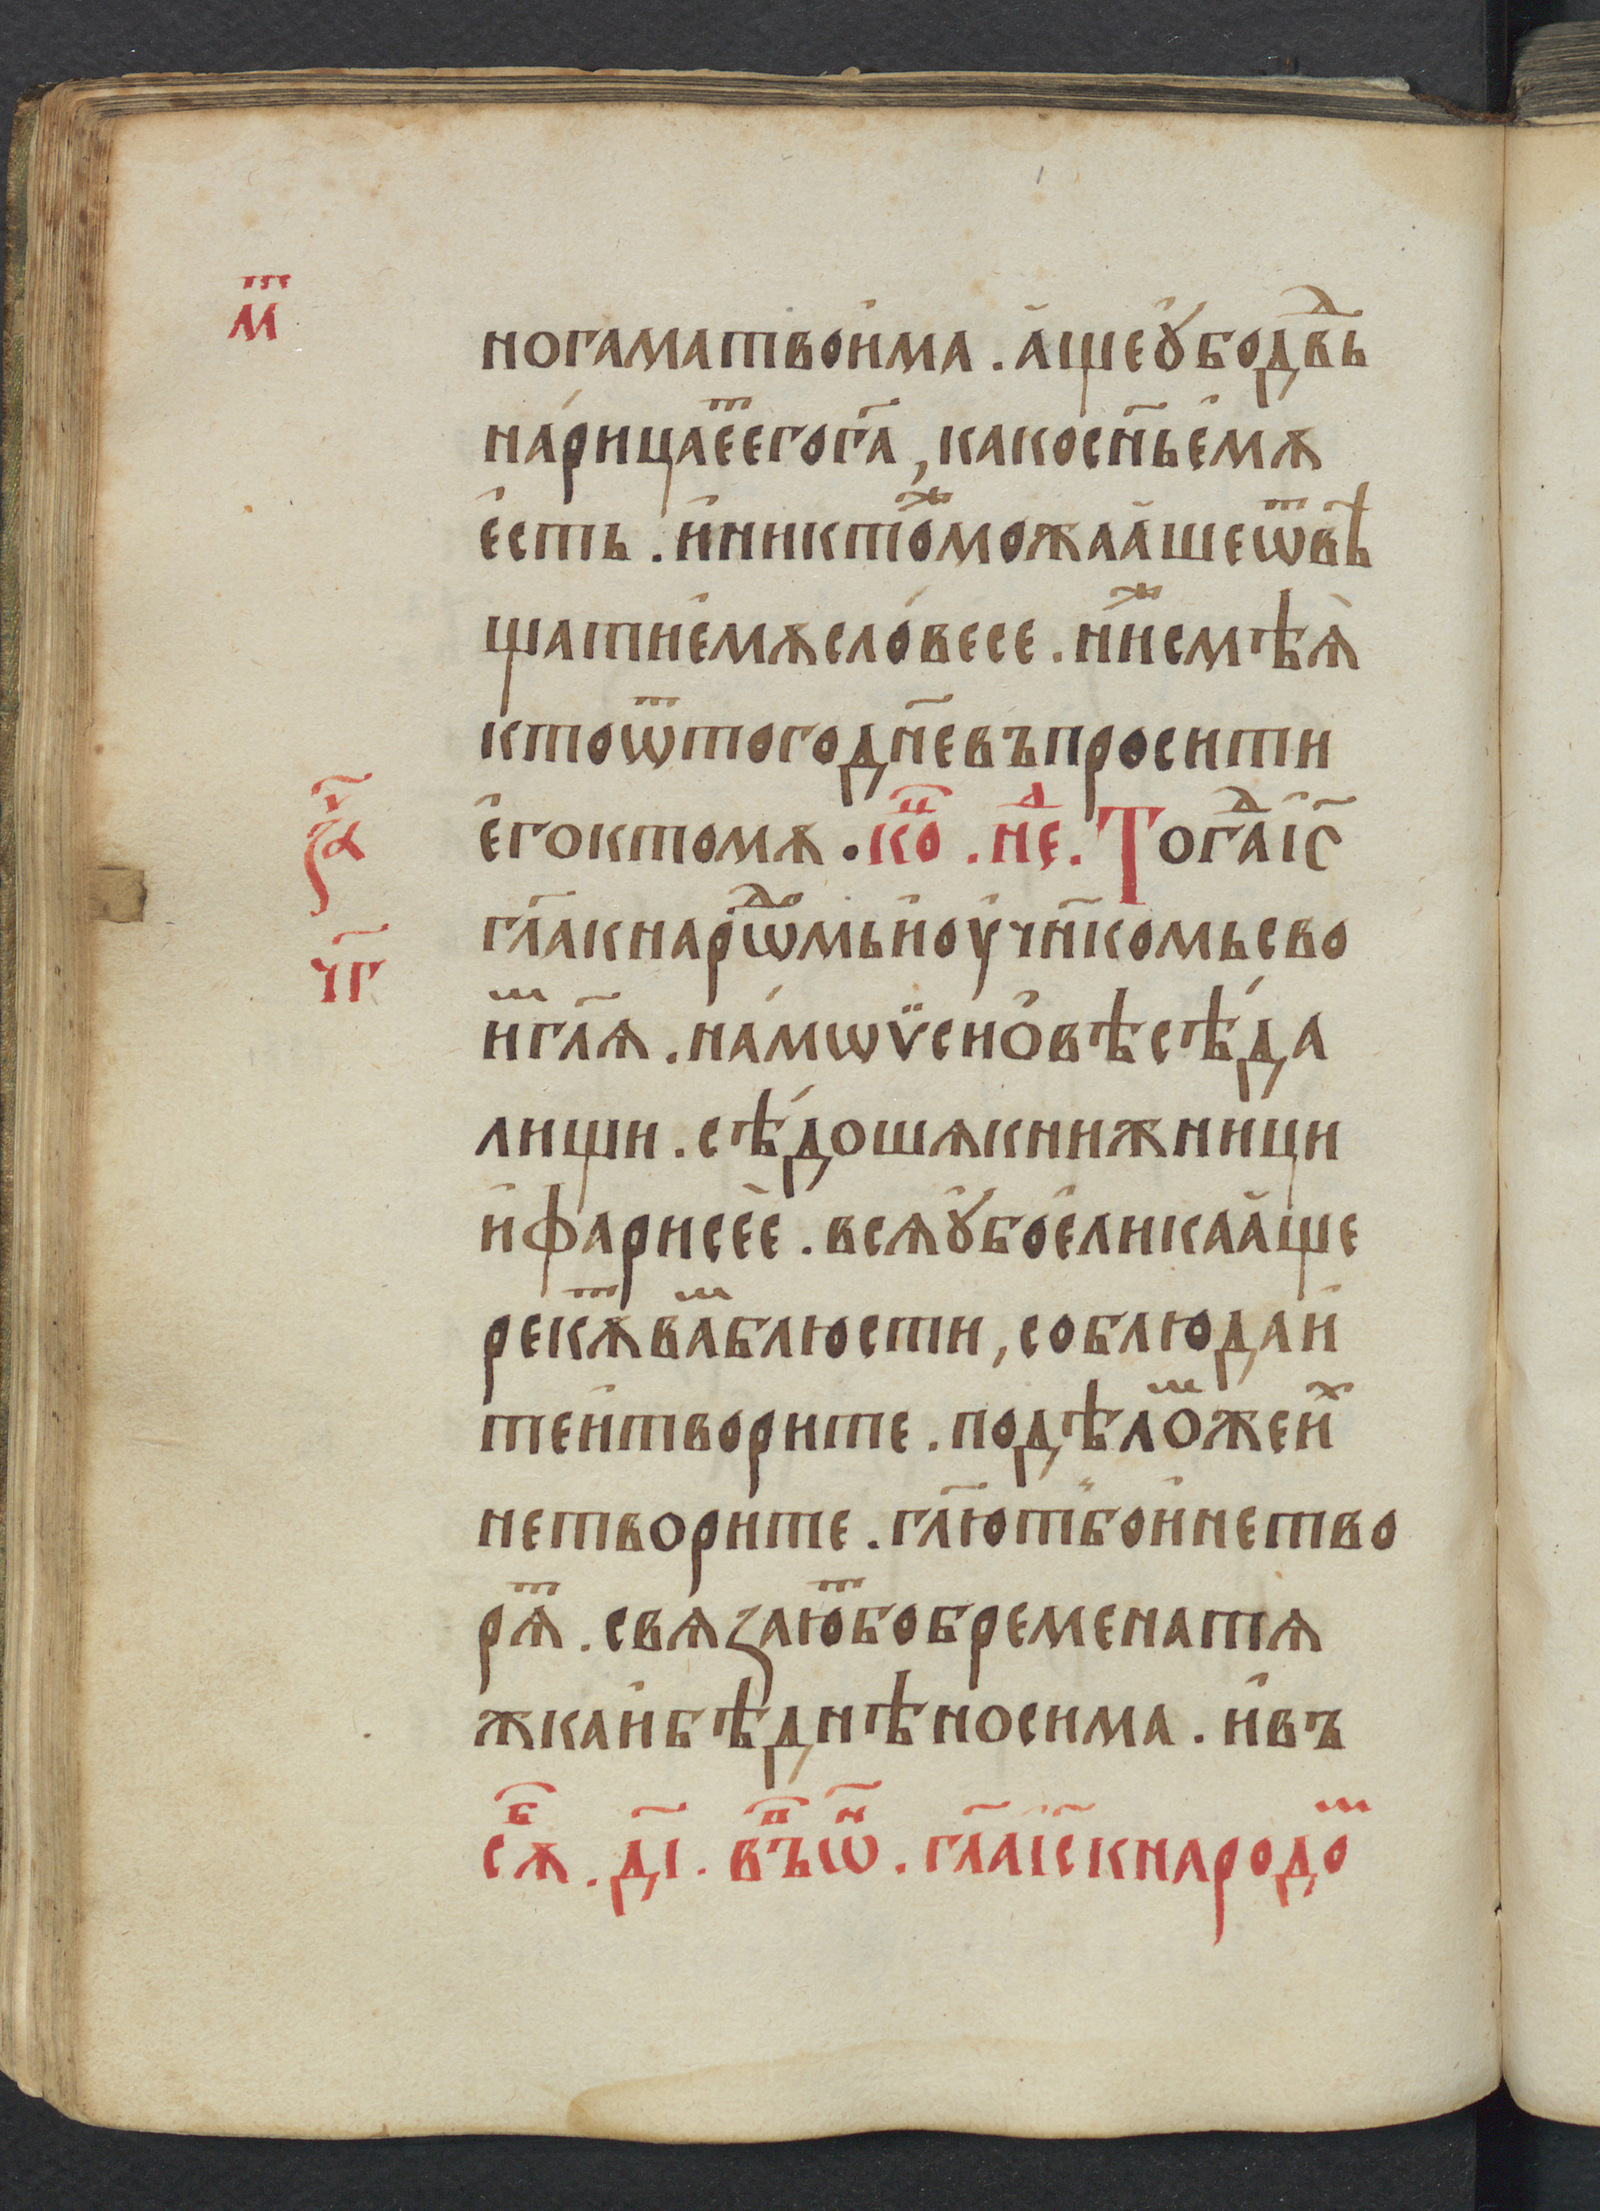 м҃ⷮ
ногаматвои҆ма . а҆щеꙋ҆бодв҃ⷣь
на́рицае҆ⷮегог҃а , какосн҃ъе҆мѫ
е҆сть . и҆никтоⷤможаа҆шеѿвѣ
щатие҆мѫсло́весе . и҆нⷤисмѣѧ̀
ктоѿтогодн҃евъпросити
е҆гоктомѫ . коⷩ҇ . неⷣ . Тогⷣаі҆с҃
ѯ҃а
гл҃акнарѡⷣмьи҆оу҆чн҃комьсво
ч҃г
иⷨгл҃ѧ . на́мѡѵ̈сно҆вѣсѣ́да
лищи . сѣ́дошѧкнижници
и҆фарисее҆ . всѧꙋ҆бое҆ликаа҆ще
рекѫⷮваⷨблюсти , соблюдаи҆
теи҆творите . подѣлоⷨжеиⷯ
нетворите . гл҃ютⸯбои҆нетво
рѧⷮ . свѧзаюⷮбобременатѧ
жкаи҆бѣднѣносима . и҆въ
сѫⷠ . д҃і . въⷫ҇ѡⷩ . гл҃аі҆с҃кнародоⷨ